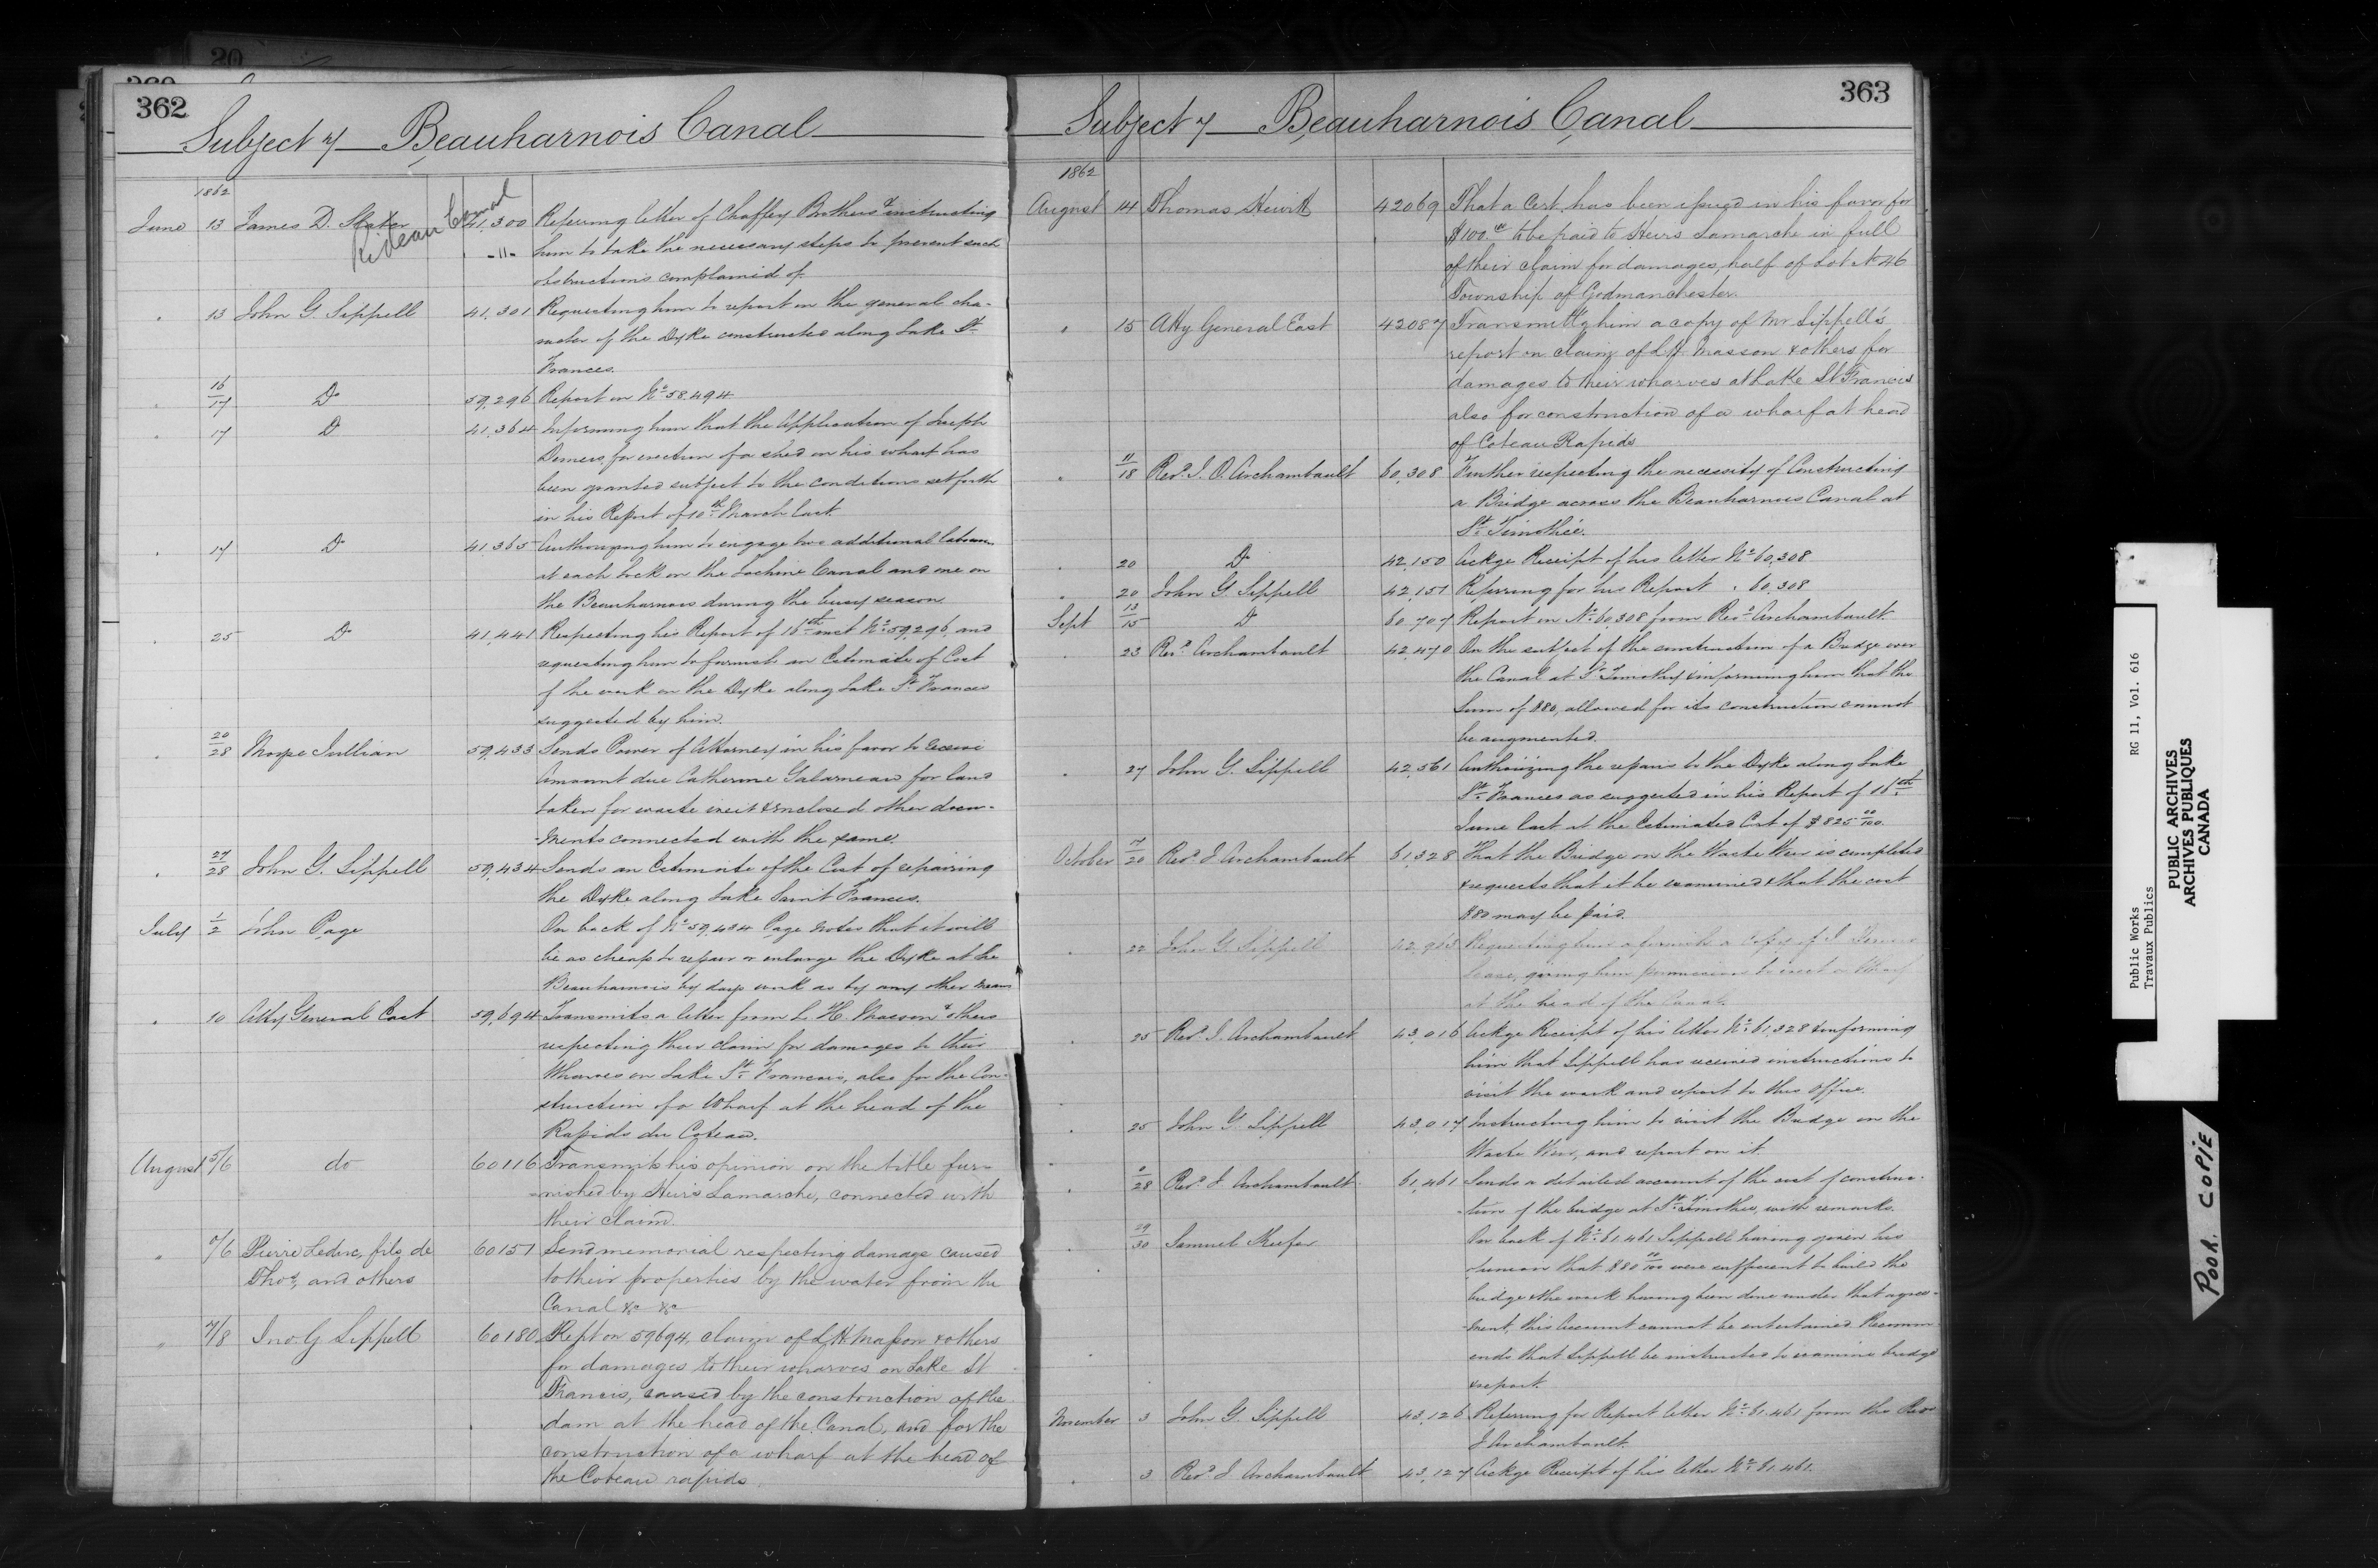 362
Subject 7 Beauharnois Canal
1862
Rideau Canal
June 13 James D. Slater 41,300 Referring letter of Chaffey Brothers & instructing
-11- him to take the necessary steps to prevent such
obstructions complained of.
13 John G. Sippell 41,301 Requesting him to report on the general cha-
racter of the Dyke constructed along Lake St.
Frances.
16/17 Do 59,296 Report on No. 58,494
17 Do 41,364 Informing him that the Application of Joseph
Demers for erection of a shed on his wharf has
been granted subject to the conditions set forth
in his Report of 10th March last.
17 Do 41,365 Authorizing him to engage two additional
at each lock on the Lachine Canal and one on
the Beauharnois during the busy season
25 Do 41,441 Respecting his Report of 16th inst No. 59,296, and
requesting him to furnish an Estimate of Cost
of the work on the Dyke along Lake St. Frances
suggested by him.
20/28 Moyse Jullian 59,433 Sends Power of Attorney in his favor to receive
Amount due Catherine Galarneau for land
taken for waste weir & enclosed other docu-
-ments connected with the same.
27/28 John G. Sippell 59,434 Sends an Estimate of the Cost of repairing
the Dyke along Lake Saint Frances.
July 1/2 John Page On back of No. 59,434 Page notes that it will
be as cheap to repair or enlarge the Dyke at the
Beauharnois by days work as by any other means
10 Atty General East 59,694 Transmits a letter from L. H. Masson & others
respecting their claim for damages to their
Wharves on Lake St. Frances, also for the Con-
struction of a Wharf at the head of the
Rapids du Coteau.
August 5/6 do 60116 Transmits his opinion on the title fur-
nished by Heirs Lamarche, connected with
their claim.
" /6 Pierre Leduc, fils de 60151 Send memorial respecting damage caused
Thos, and others to their properties by the water from the
Canal &c &c
" 7/8 Jno. G Sippell 60180 Rept on 59694, claim of L H. Masson & others
for damages to their wharves on Lake St
Francis, caused by the construction of the
dam at the head of the Canal, and for the
construction of a wharf at the head of
the Coteau rapids.
363
Subject 7 Beauharnois Canal
1862
August 14 Thomas Hewitt 42069 That a Cert. has been issued in his favor for
$100.00 to be paid to Heirs Lamarche in full
of their claim for damages, half of Lot No 46
Township of Godmanchester.
15 Atty General East 42087 Transmittg him a copy of Mr Sippell's
report on claim of L H Masson & others for
damages to their wharves at Lake St Francis
also for construction of a wharf at head
of Coteau Rapids
11/18 Revd. J. O. Archambault 60,308 Further respecting the necessity of Constructing
a Bridge across the Beauharnois Canal at
St. Timothée.
20 Do 42,150 Ackge Receipt of his letter No. 60,308
20 John G. Sippell 42,151 Referring for his Report " 60,308
Sept 13/15 Do 60,707 Report on No. 60,308 from Revd Archambault.
23 Revd. Archambault 42,470 On the subject of the construction of a Bridge over
the Canal at St. Timothy & informing him that the
sum of $80, allowed for its construction cannot
be augmented.
27 John G. Sippell 42,561 Authorizing the repairs to the Dyke along Lake
St. Frances as suggested in his Report of 16th
June last at the Estimated Cost of $825 00/100.
October 7/20 Revd. J Archambault 61,328 That the Bridge on the Waste Weir is completed
& requests that it be examined & that the cost
$80 may be paid.
22 John G. Sippell 42,963 Requesting him to furnish a Copy of J.
lease, giving him permission to erect a Wharf
at the head of the Canal.
25 Revd. J. Archambault 43,016 Ackge Receipt of his letter No. 61,328 & informing
him that Sippell has received instructions to
visit the work and report to this office.
25 John G. Sippell 43,017 Instructing him to visit the Bridge on the
Waste Weir, and report on it
/28 Revd. J Archambault 61,461 Sends a detailed account of the cost of construc-
-tion of the bridge at St. Timothée, with remarks.
29/30 Samuel Keefer On back of No. 61,461 Sippell having given his
opinion that $80 00/100 were sufficient to build the
bridge & the work having been done under that agree-
-ment, this Account cannot be entertained. Recomm-
ends that Sippell be instructed to examine bridge
& report.
November 3 John G. Sippell 43,126 Referring for Report letter No. 61,461 from the Revd
J Archambault.
3 Revd J Archambault 43,127 Ackge Receipt of his letter No. 61,461.
Public Works
Travaux Publics
RG 11, Vol. 616
PUBLIC ARCHIVES
ARCHIVES PUBLIQUES
CANADA
POOR COPIE